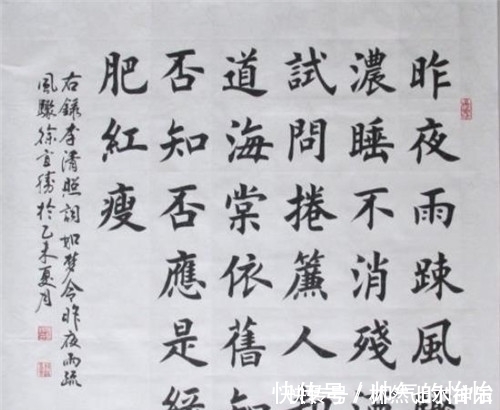 昨夜雨踈風驟
濃睡不消殘
試問捲簾人
道海棠依舊知
否知否應是綠
肥紅瘦
右錄李清照詞如梦令昨夜雨疏
風驟徐宜勝於乙未夏月